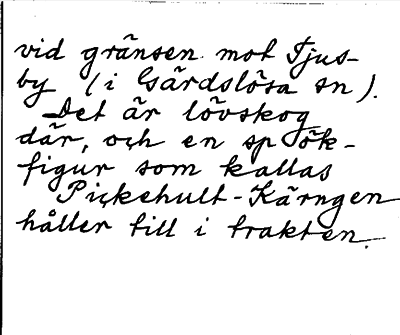 vid gränsen mot Tjus-
by (i Gärdslösa sn).
Det är lövskog
där, och en spök-
figur som kallas
Pickehult-Kärngen
håller till i trakten.